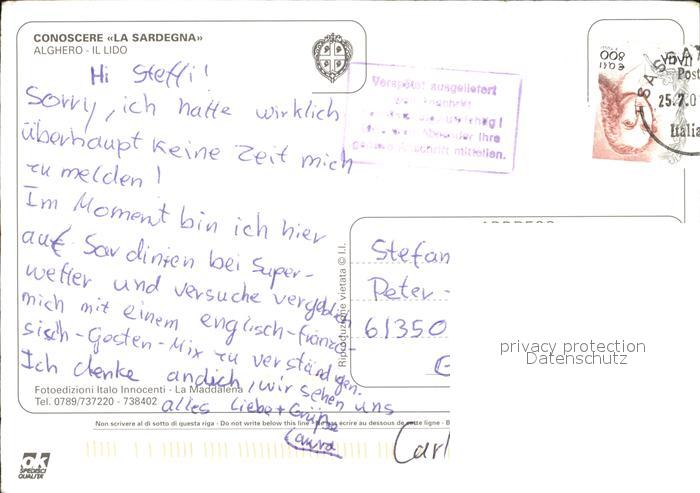 CONOSCERE «LA SARDEGNA»
ALGHERO - IL LIDO
Hi Steffi!
Sorry, ich hatte wirklich
überhaupt keine Zeit mich
zu melden!
Im Moment bin ich hier
auf Sardinien bei Super-
wetter und versuche vergeblich
mich mit einem englisch-franzö-
sisch-Gesten-Mix zu verständigen.
Ich denke an dich, wir sehen uns
alles Liebe + Grüße
Laura
Fotoedizioni Italo Innocenti - La Maddalena
Tel. 0789/737220 - 738402
Non scrivere al di sotto di questa riga - Do not write below this line - Ne pas écrire au dessous de cette ligne - B
SPEDISCI
QUALITÀ
Riproduzione vietata © I.I.
Verspätet ausgeliefert
Anschrift
Absender Ihre
Anschrift mitteilen.
800
SASSA
Post
25.7.0
Italia
ADDRESS
Stefan
Peter-
61350
Carl
privacy protection
Datenschutz